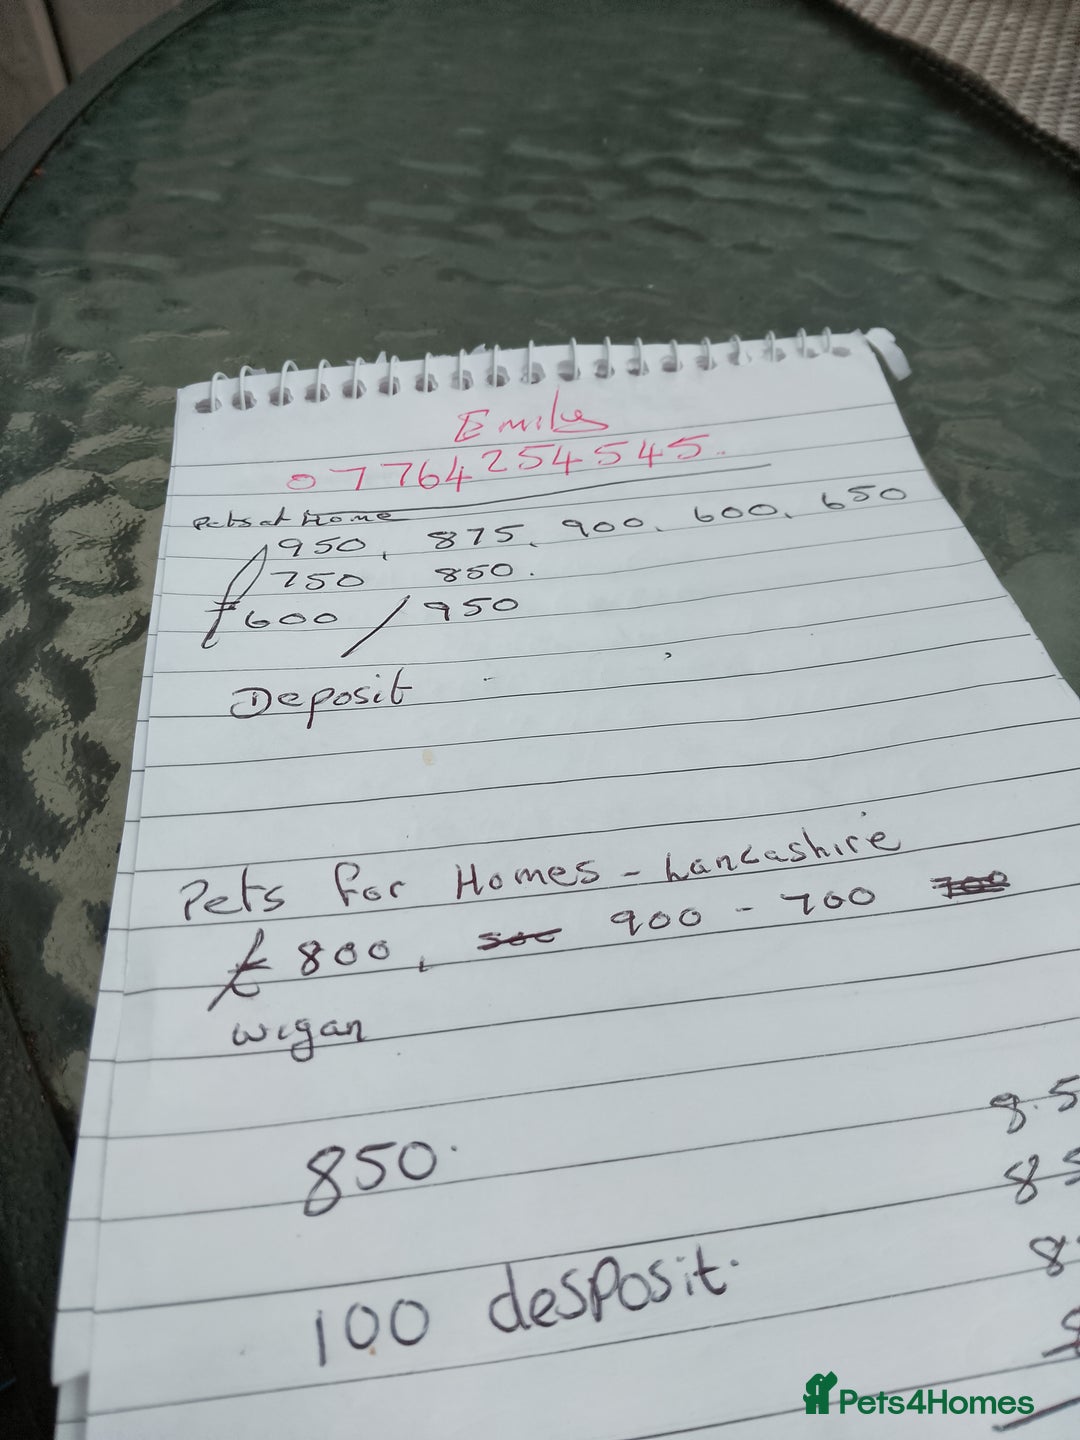 Emily
07764254545.
Pets at Home
£ 950, 875, 900, 600, 650
750 850.
600 / 950
Deposit -
Pets for Homes - Lancashire
£ 800, 900 - 700 700
Wigan
8.5
850.
85
8
100 desposit.
8
Pets4Homes